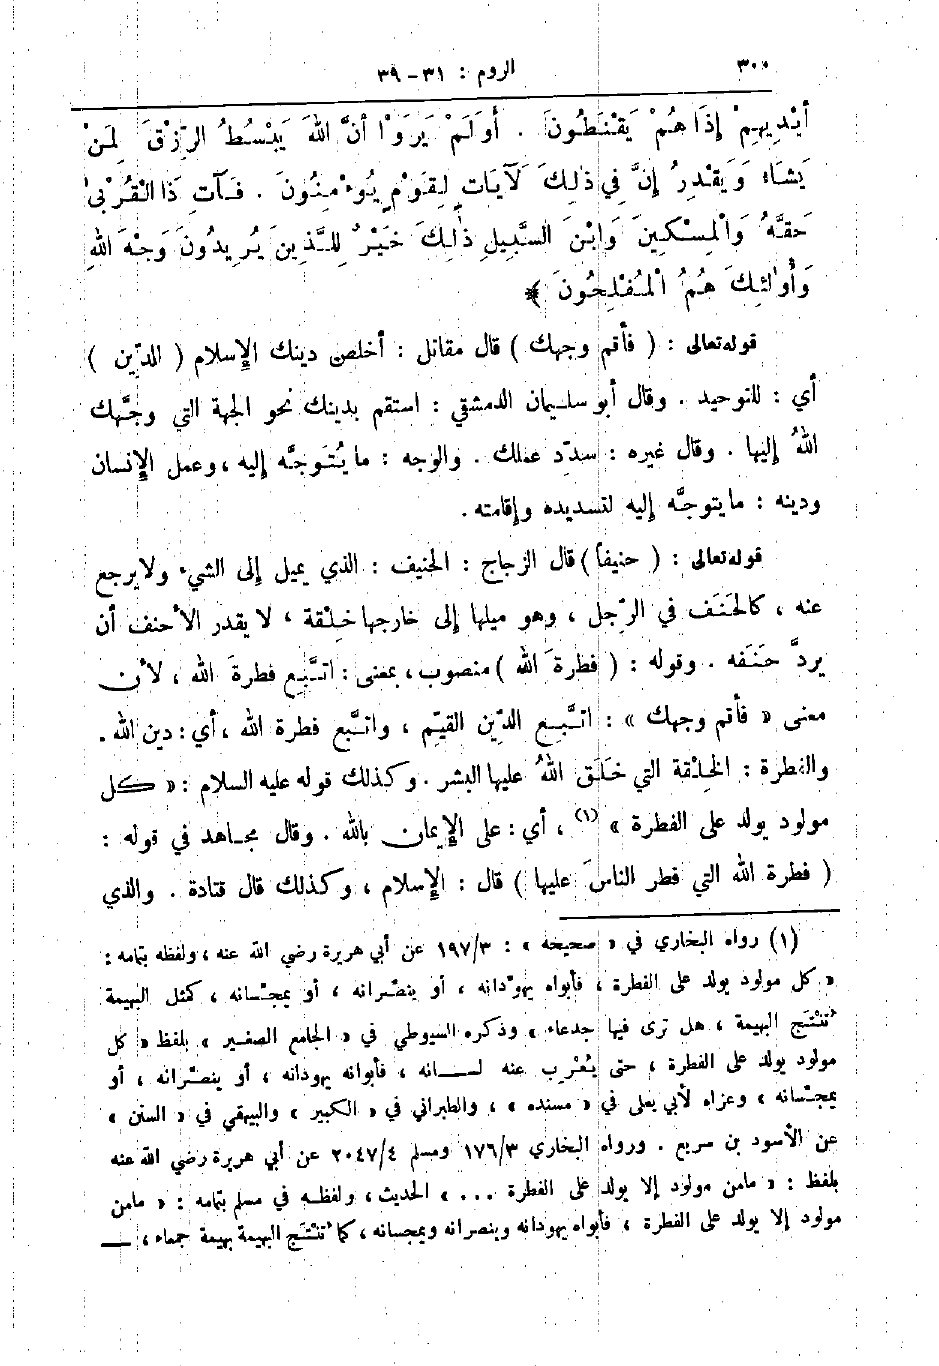 ٣٠٠ الروم : ٣١ - ٣٩
أَيْدِيهِمْ إِذَا هُمْ يَقْنَطُونَ . أَوَلَمْ يَرَوْا أَنَّ اللهَ يَبْسُطُ الرِّزْقَ لِمَنْ
يَشَاءُ وَيَقْدِرُ إِنَّ فِي ذٰلِكَ لَآيَاتٍ لِقَوْمٍ يُؤْمِنُونَ . فَآتِ ذَا الْقُرْبىٰ
حَقَّهُ وَالْمِسْكِينَ وَابْنَ السَّبِيلِ ذٰلِكَ خَيْرٌ لِلَّذِينَ يُرِيدُونَ وَجْهَ اللهِ
وَأُولٰئِكَ هُمُ الْمُفْلِحُونَ ﴾
قوله تعالى : ( فأقم وجهك ) قال مقاتل : أخلص دينك الإسلام ( للدِّين )
أي : للتوحيد . وقال أبو سليمان الدمشقي : استقم بدينك نحو الجهة التي وجَّهك
اللهُ إليها . وقال غيره : سدِّد عملك . والوجه : ما يُتَوجَّه إليه ، وعمل الإنسان
ودينه : ما يتوجَّه إليه لتسديده وإقامته .
قوله تعالى : ( حنيفاً ) قال الزجاج : الحنيف : الذي يميل إلى الشيء ولا يرجع
عنه ، كالحَنَف في الرِّجل ، وهو ميلها إلى خارجها خِلْقة ، لا يقدر الأحنف أن
يردَّ حَنَفه . وقوله : ( فطرةَ الله ) منصوب ، بمعنى : اتَّبِع فطرةَ الله ، لأن
معنى « فأقم وجهك » : اتَّبِع الدِّين القيِّم ، واتَّبع فطرة الله ، أي : دين الله .
والفطرة : الخِلْقة التي خَلَق اللهُ عليها البشر . وكذلك قوله عليه السلام : « كل
مولود يولد على الفطرة » (١) ، أي : على الإيمان بالله . وقال مجاهد في قوله :
( فطرة الله التي فطر الناسَ عليها ) قال : الإسلام ، وكذلك قال قتادة . والذي
(١) رواه البخاري في « صحيحه » : ١٩٧/٣ عن أبي هريرة رضي الله عنه ، ولفظه بتمامه :
« كل مولود يولد على الفطرة ، فأبواه يهوّدانه ، أو ينصّرانه ، أو يمجّسانه ، كمثل البهيمة
تُنْتَج البهيمة ، هل ترى فيها جدعاء » وذكره السيوطي في « الجامع الصغير » بلفظ « كل
مولود يولد على الفطرة ، حتى يُعْرِب عنه لسانه ، فأبوانه يهودانه ، أو ينصّرانه ، أو
يمجّسانه » وعزاه لأبي يعلى في « مسنده » ، والطبراني في « الكبير » والبيهقي في « السنن »
عن الأسود بن سريع . ورواه البخاري ١٧٦/٣ ومسلم ٢٠٤٧/٤ عن أبي هريرة رضي الله عنه
بلفظ : « مامن مولود إلا يولد على الفطرة ... » الحديث ، ولفظه في مسلم بتمامه : « مامن
مولود إلا يولد على الفطرة ، فأبواه يهودانه وينصرانه ويمجسانه ، كما تُنْتَج البهيمة بهيمة جمعاء ، ـــ